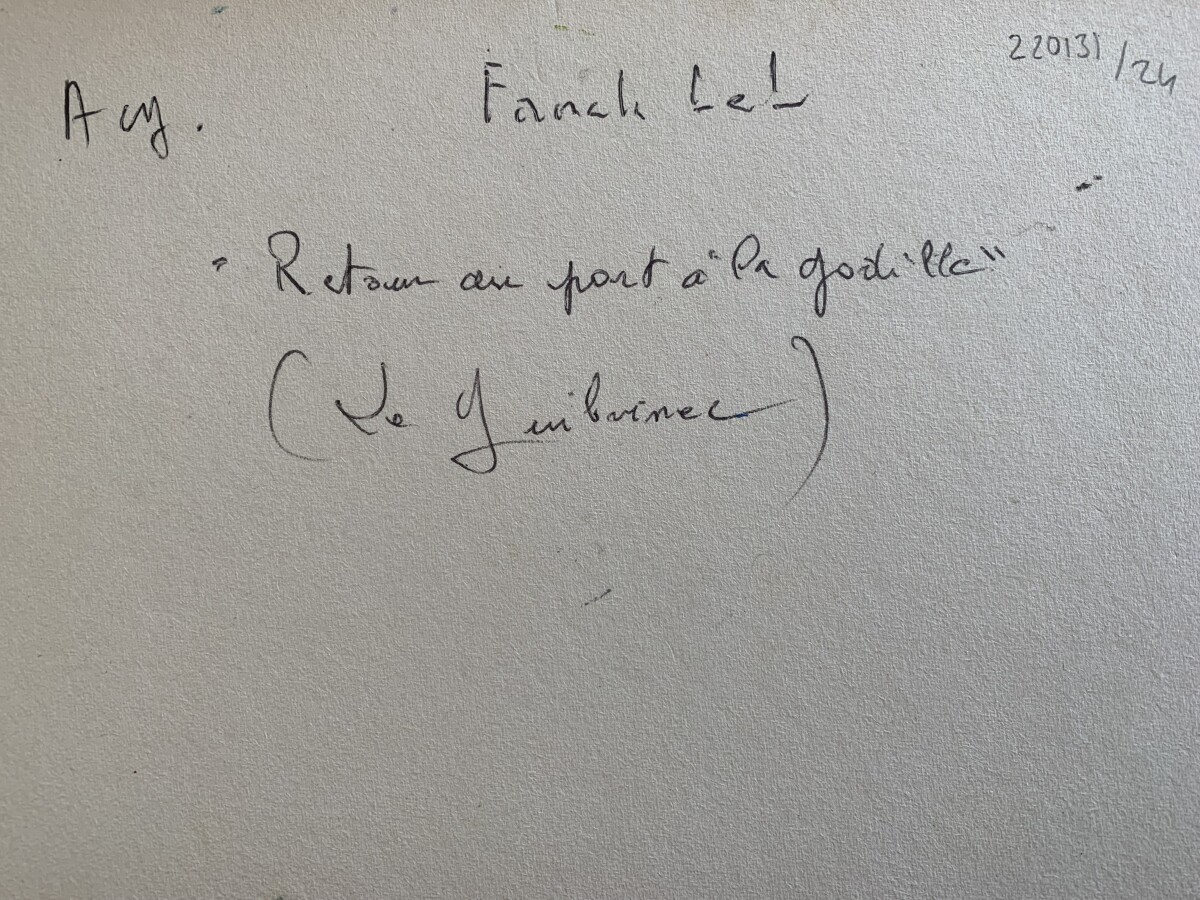 220131/24
Acy. Fanch LeL
"Retour au port à la godille"
(Le Guilvinec)